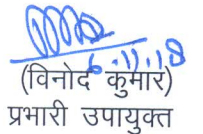 6.11.18
(विनोद कुमार)
प्रभारी उपायुक्त